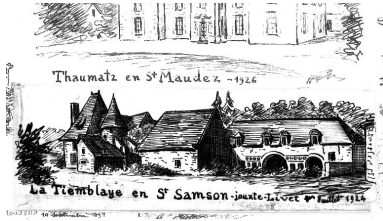 Thaumatz en St Maudez - 1926
La Tiemblaye en St Samson - jouxte-Livet 1er Juillet 1924
10 Septembre